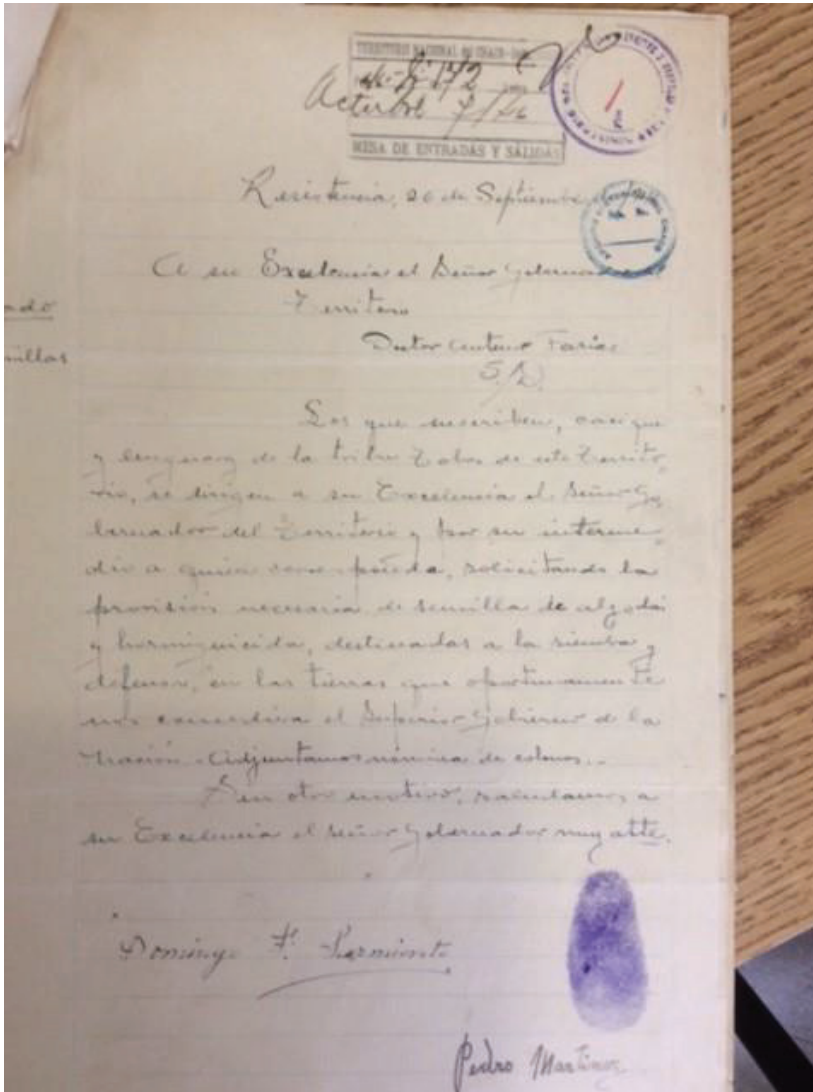 TERRITORIO NACIONAL DEL CHACO
Octubre 7/26
MESA DE ENTRADAS Y SALIDAS
Resistencia, 26 de Septiembre
A su Excelencia el Señor Gobernador
Territorio
Doctor Centeno Farías
S/D.
Los que suscriben, cacique
y lenguaraz de la tribu Tobas de este Territo-
rio, se dirigen a su Excelencia el Señor Go-
bernador del Territorio y por su interme-
dio a quien corresponda, solicitando la
provisión necesaria de semilla de algodón
y hormiguicida, destinadas a la siembra y
defensa, en las tierras que oportunamente
nos concediera el Superior Gobierno de la
Nación. Adjuntamos nómina de colonos..
Sin otro motivo, saludamos a
su Excelencia el señor Gobernador muy atte.
Domingo F. Sarmiento
Pedro Martinez